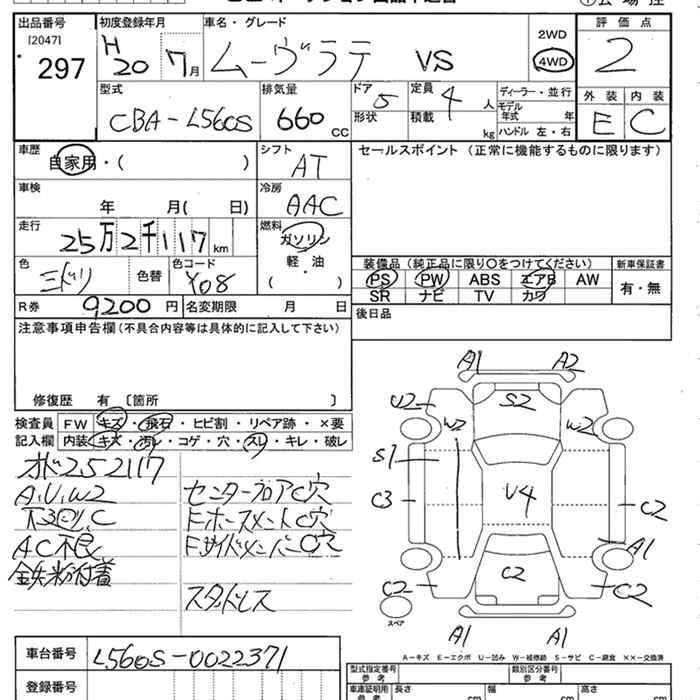 出品番号 初度登録年月 車名・グレード 評価点
[2047]
297 H20 7月 ムーヴラテ VS 2WD 4WD 2
型式 排気量 ドア 5 定員 4人 ディーラー・並行 外装 内装
CBA-L560S 660cc 形状 積載 kg モデル年式 年 E C
ハンドル 左・右
車歴 自家用・( ) シフト AT セールスポイント (正常に機能するものに限ります)
車検 年 月( 日) 冷房 AAC
走行 25万2千117km 燃料 ガソリン
軽・油
( )
色 色替 色コード Y08 装備品(純正品に限り○をつけてください) 新車保証書
PS PW ABS エアB AW 有・無
SR ナビ TV カワ
R券 9200円 名変期限 月 日 後日品
注意事項申告欄(不具合内容等は具体的に記入して下さい)
修復歴 有 〔箇所 〕
検査員 FW キズ・飛石・ヒビ割・リペア跡・×要
記入欄 内装 キズ・汚レ・コゲ・穴・スレ・キレ・破レ
オド252117
A.U.W2 センターフロアC穴
下回りC Fホースメント C穴
AC不良 Fサイドメンバー C穴
鉄粉付着
スタットレス
A1 A2
U2 S2
W2 W2
S1
C3 V4 C2
A1
C2 C2 C2
スペア
A1 A1
A-キズ E-エクボ U-凹み W-補修跡 S-サビ C-腐食 ××-交換済
車台番号 L560S-0022371
登録番号
型式指定番号 参考 類別区分番号 参考
車庫証明用 参考 長さ cm 幅 cm 高さ cm